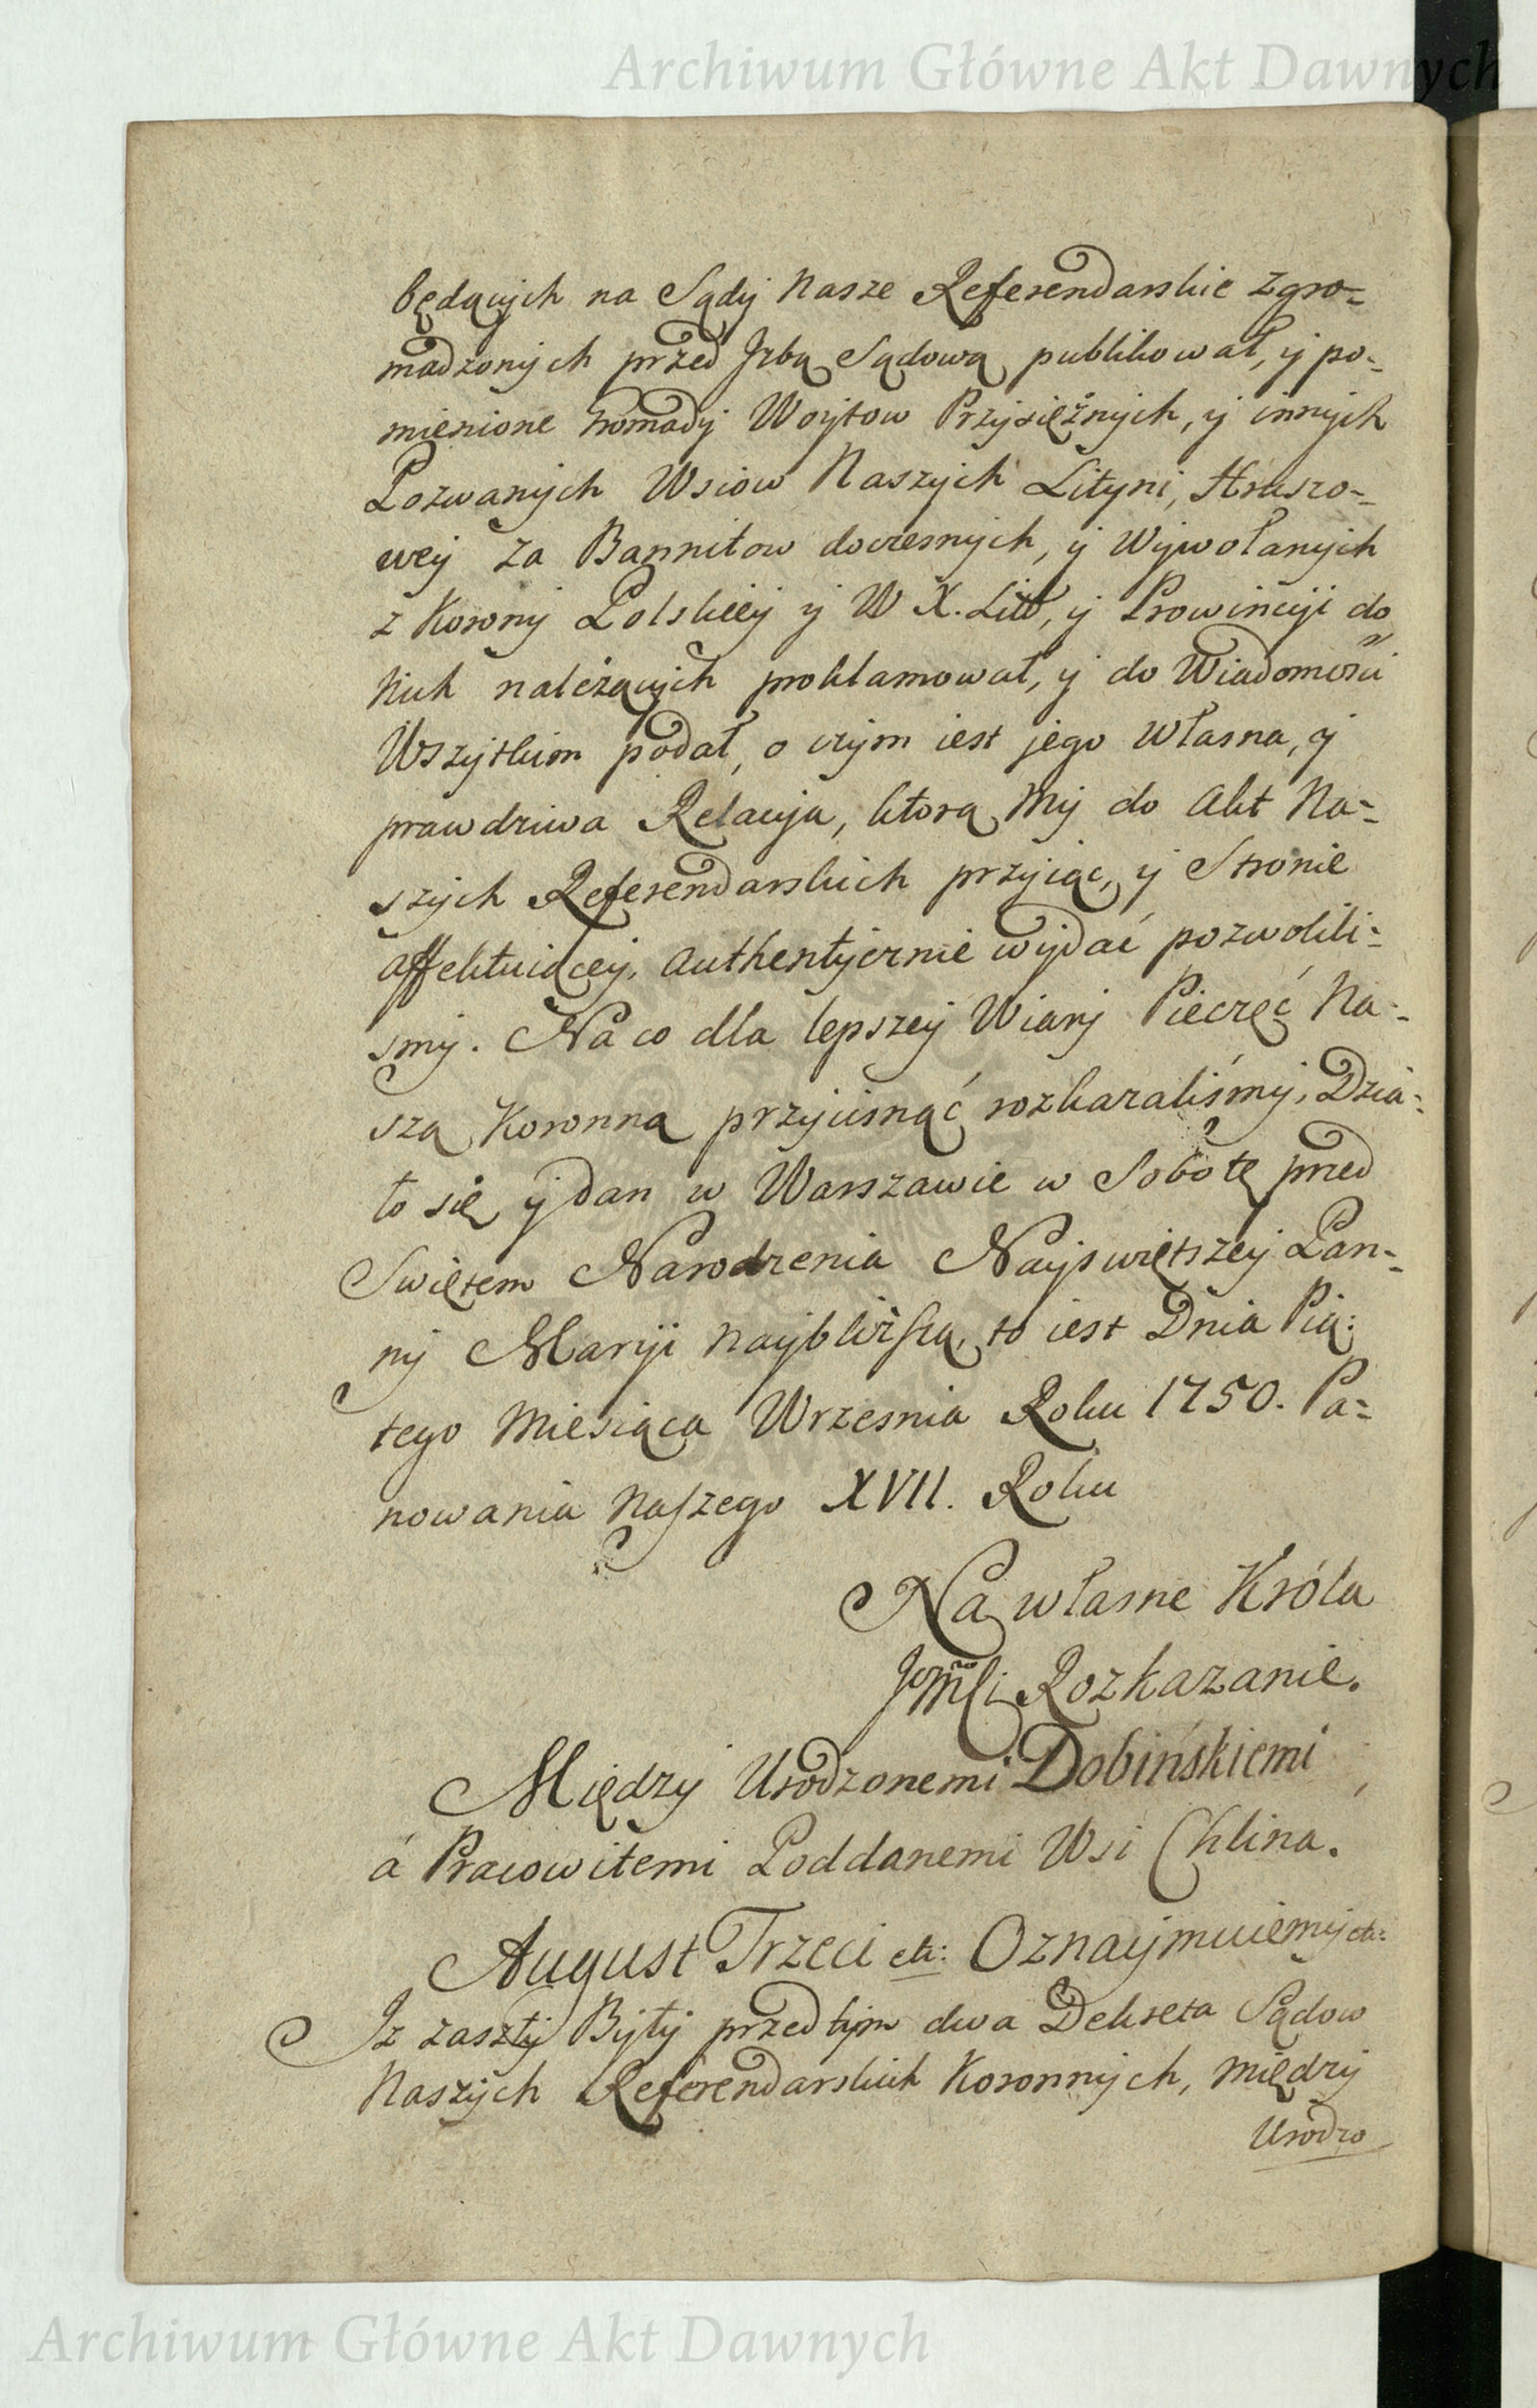 Archiwum Główne Akt Dawnych
będących na Sądy Nasze Referendarskie Zgro-
madzonych przed Jzbą Sądową publikował, y po-
mienione hromady Woytow Przysiężnych, y innych
Pozwanych Wsiow Naszych Lityni, Hruszo-
wey za Bannitow doczesnych, y Wywołanych
z Korony Polskiey y W X. Litt, y Prowincyi do
Nich należących proklamował, y do Wiadomości
Wszystkim podał, o czym iest jego własna, y
prawdziwa Relacyja, ktorą My do Akt Na-
szych Referendarskich przyiąc, y Stronie
affektuiącey, Authentycznie wydać pozwolili-
smy. Na co dla lepszey Wiary Pieczęć Na-
szą Koronną przycisnąć rozkazaliśmy, Dzia-
ło się y dan w Warszawie w Sobotę przed
Swiętem Narodzenia Nayswiętszey Pan-
ny Maryi Naybliższą, to iest Dnia Pią-
tego Miesiąca Wrzesnia Roku 1750. Pa-
nowania Naszego XVII. Roku
Na własne Króla
Jmci Rozkazanie.
Między Urodzonemi Dobińskiemi
á Pracowitemi Poddanemi Wsi Chlina.
August Trzeci etc: Oznaymuiemy etc:
Jż zaszły Były przed tym dwa Dekreta Sądow
Naszych Referendarskich Koronnych, między
Urodzo
Archiwum Główne Akt Dawnych